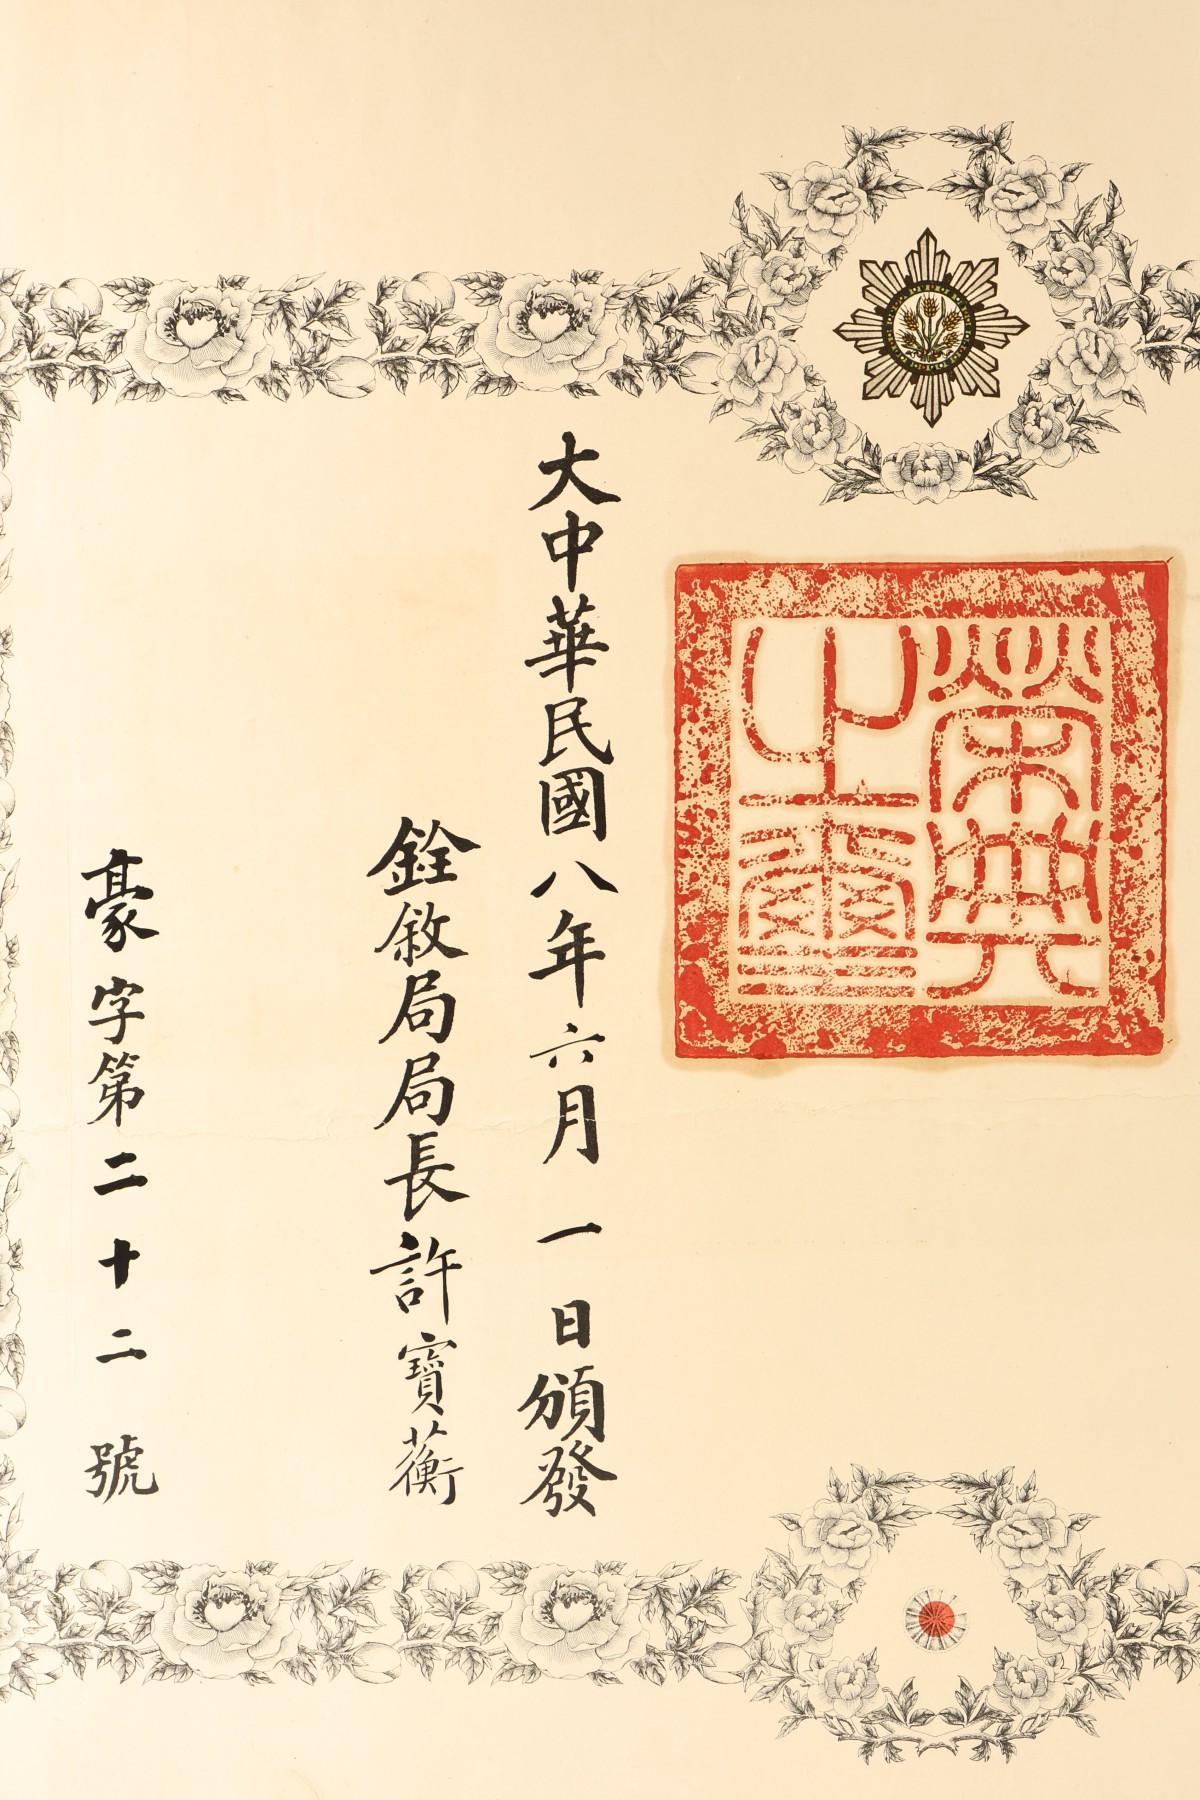 榮典之璽
大中華民國八年六月一日頒發
銓敘局局長許寶蘅
豪字第二十二號